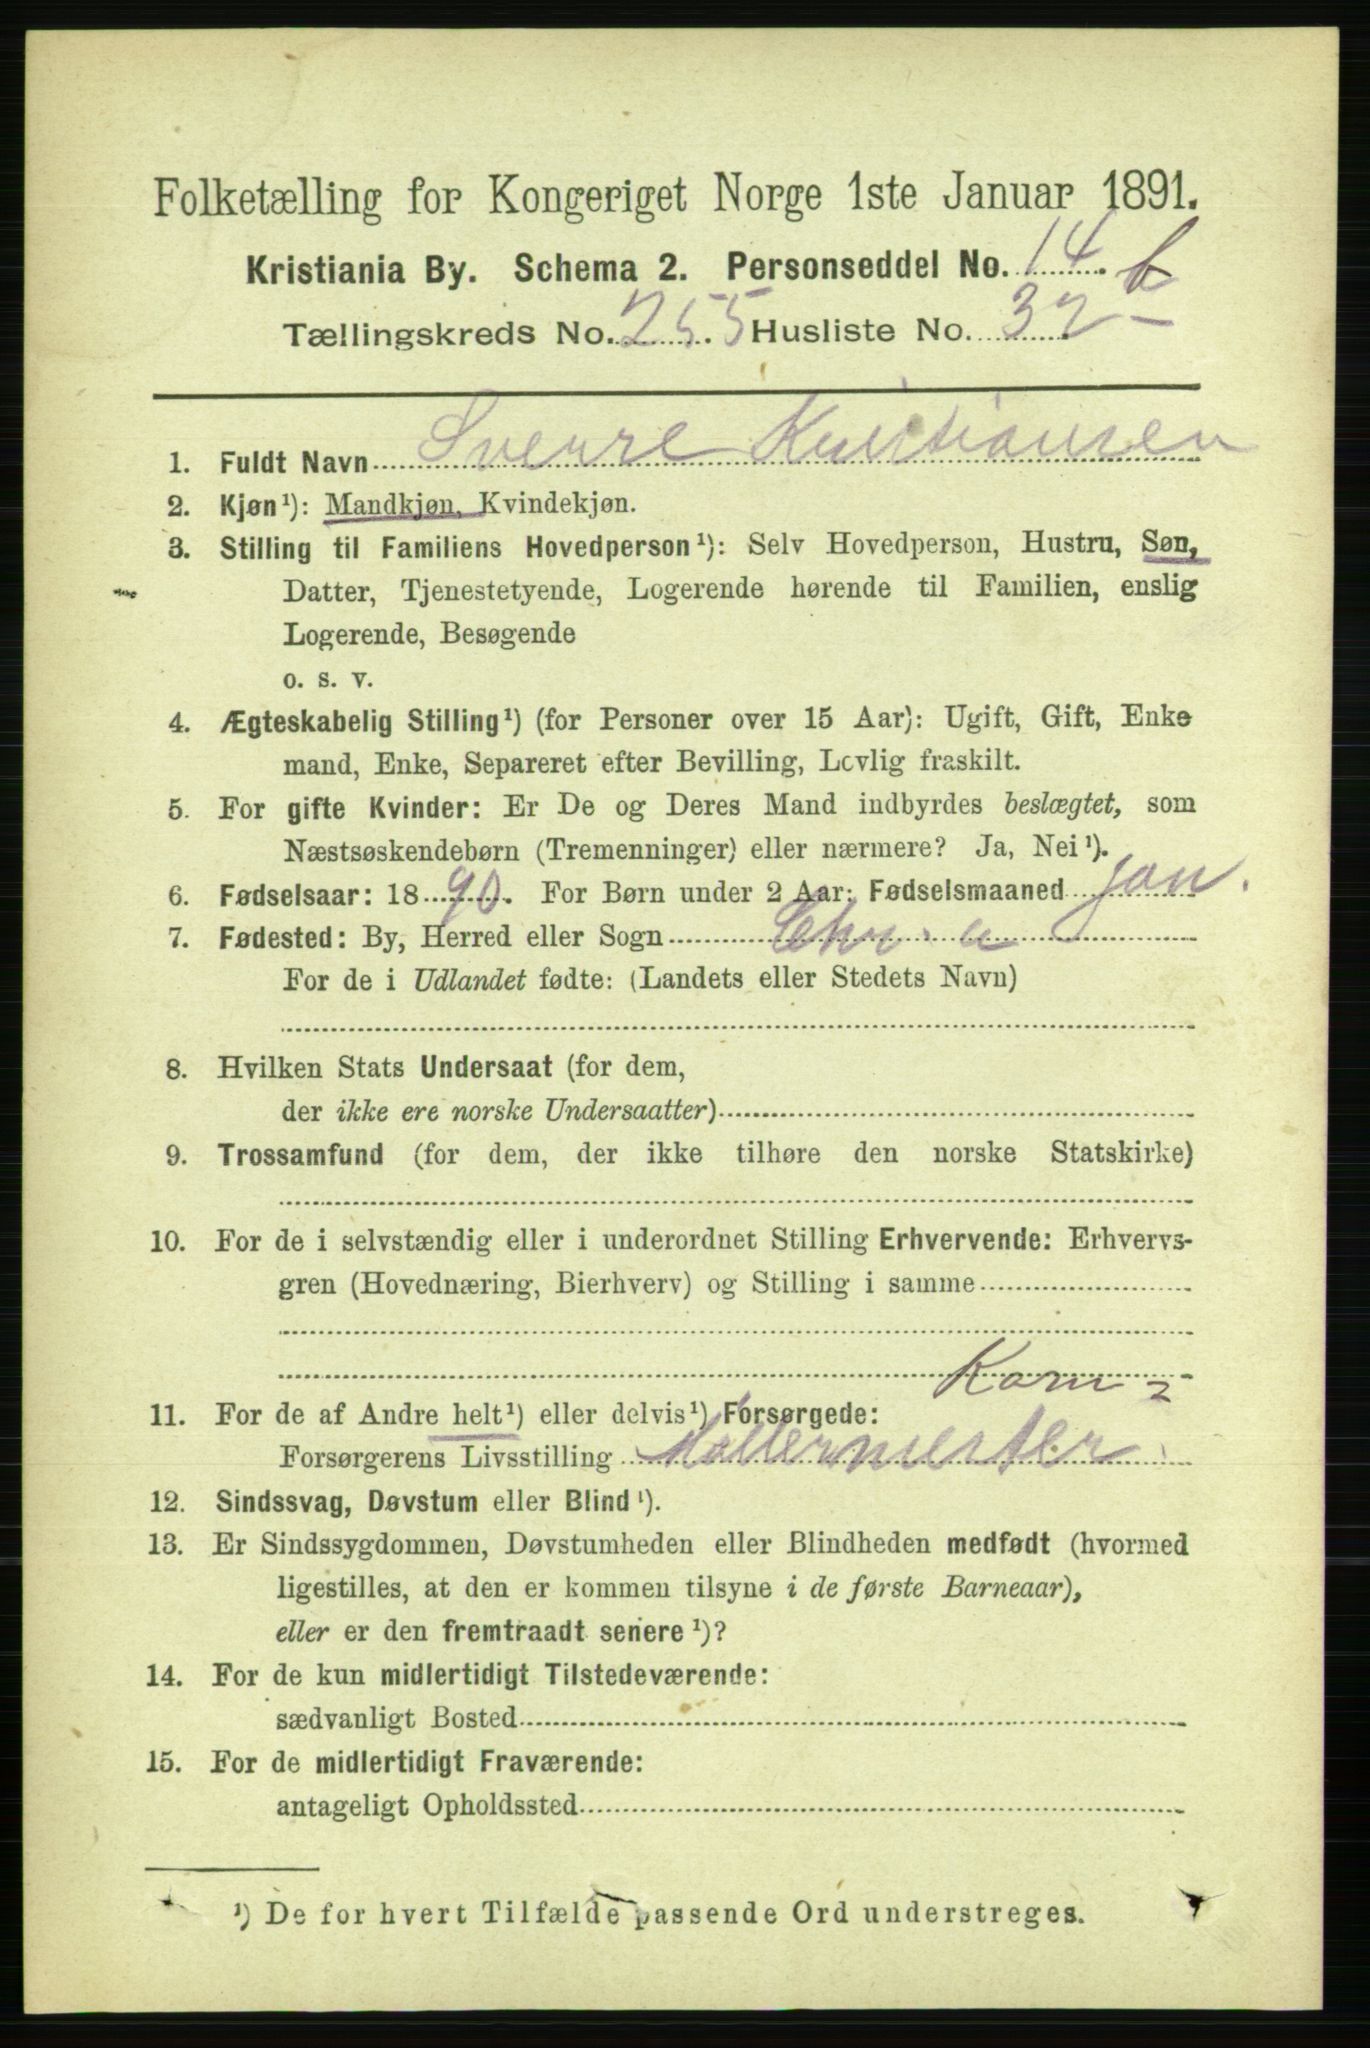 Folketælling for Kongeriget Norge 1ste Januar 1891.
Kristiania By. Schema 2. Personseddel No. 14 b
Tællingskreds No. 255 Husliste No. 32
1. Fuldt Navn Sverre Kristiansen
2. Kjøn¹): Mandkjøn, Kvindekjøn.
3. Stilling til Familiens Hovedperson¹): Selv Hovedperson, Hustru, Søn,
Datter, Tjenestetyende, Logerende hørende til Familien, enslig
Logerende, Besøgende
o. s. v.
4. Ægteskabelig Stilling¹) (for Personer over 15 Aar): Ugift, Gift, Enke
mand, Enke, Separeret efter Bevilling, Lovlig fraskilt.
5. For gifte Kvinder: Er De og Deres Mand indbyrdes beslægtet, som
Næstsøskendebørn (Tremenninger) eller nærmere? Ja, Nei¹).
6. Fødselsaar: 1890. For Børn under 2 Aar: Fødselsmaaned Jan.
7. Fødested: By, Herred eller Sogn Chr.a
For de i Udlandet fødte: (Landets eller Stedets Navn)
8. Hvilken Stats Undersaat (for dem,
der ikke ere norske Undersaatter)
9. Trossamfund (for dem, der ikke tilhøre den norske Statskirke)
10. For de i selvstændig eller i underordnet Stilling Erhvervende: Erhvervs-
gren (Hovednæring, Bierhverv) og Stilling i samme
Korn-
11. For de af Andre helt¹) eller delvis¹) Forsørgede:
Forsørgerens Livsstilling Møllermester
12. Sindssvag, Døvstum eller Blind¹).
13. Er Sindssygdommen, Døvstumheden eller Blindheden medfødt (hvormed
ligestilles, at den er kommen tilsyne i de første Barneaar),
eller er den fremtraadt senere¹)?
14. For de kun midlertidigt Tilstedeværende:
sædvanligt Bosted
15. For de midlertidigt Fraværende:
antageligt Opholdssted
¹) De for hvert Tilfælde passende Ord understreges.